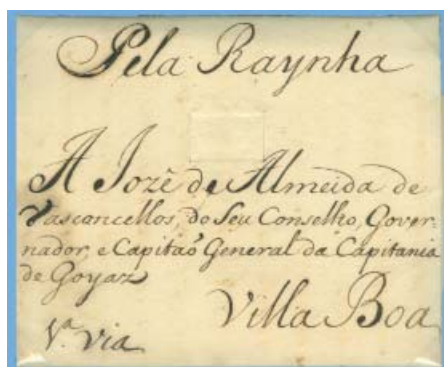 Pela Raynha
A Jozê de Almeida de
Vasconcellos, do Seu Conselho, Gover-
nador, e Capitaõ General da Capitania
de Goyaz
Villa Boa
1.ª via